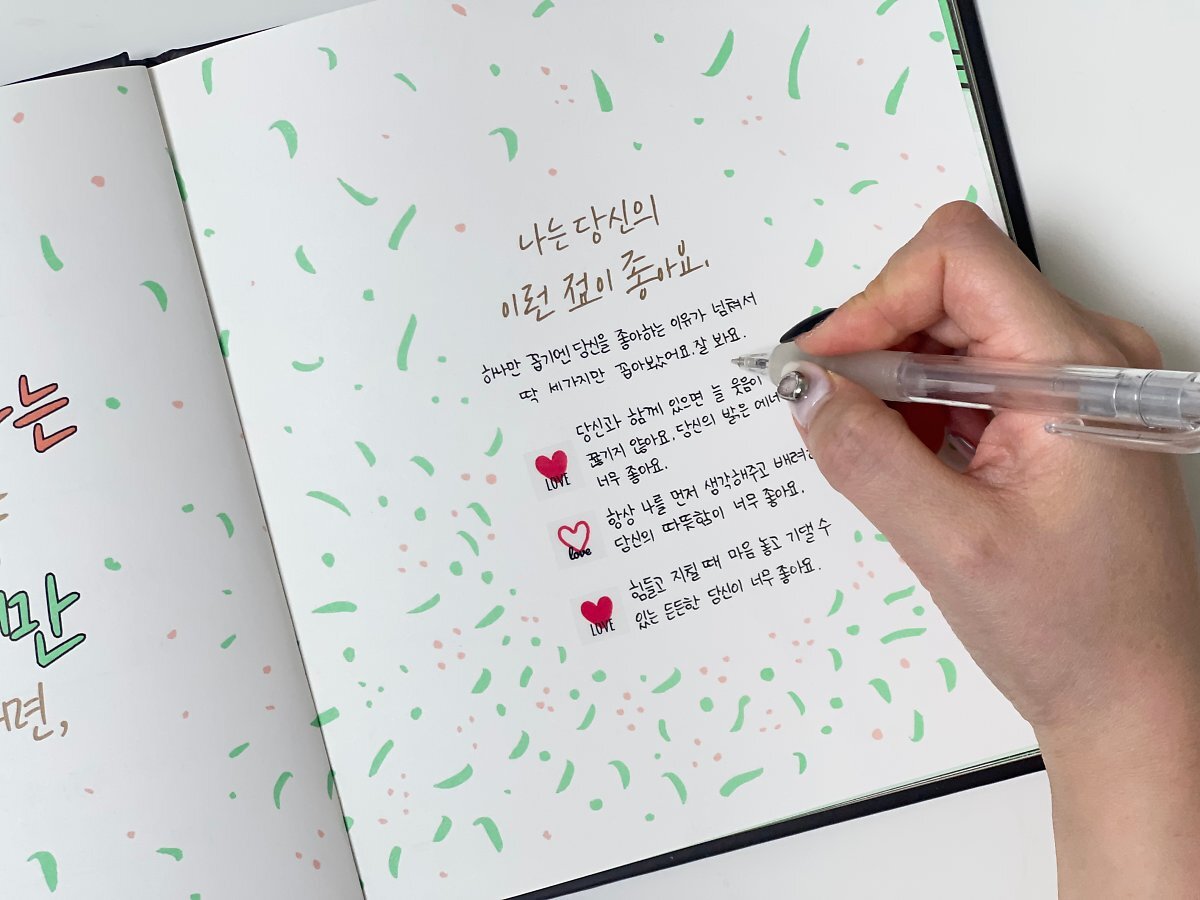 는
만
면,
나는 당신의
이런 점이 좋아요.
하나만 꼽기엔 당신을 좋아하는 이유가 넘쳐서
딱 세가지만 꼽아봤어요. 잘 봐요.
당신과 함께 있으면 늘 웃음이
끊기지 않아요. 당신의 밝은
너무 좋아요.
LOVE
항상 나를 먼저 생각해주고
당신의 따뜻함이 너무 좋아요.
love
힘들고 지칠 때 마음 놓고 기댈 수
있는 든든한 당신이 너무 좋아요.
LOVE